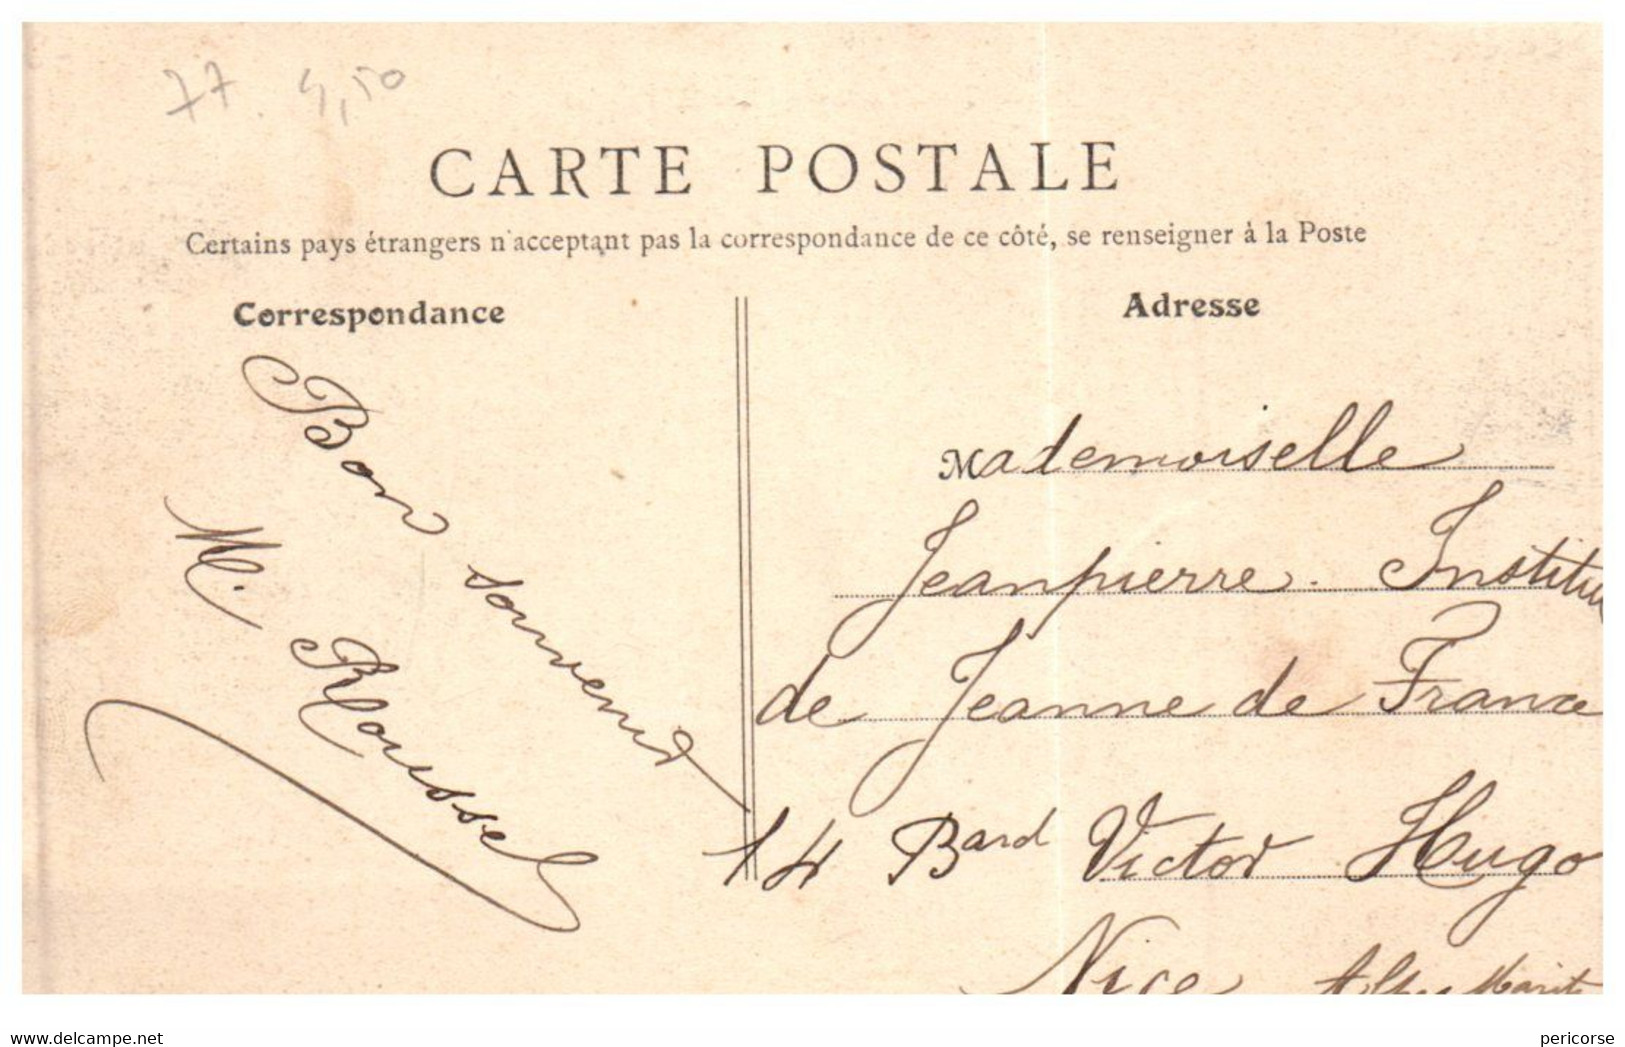 77. 4,50
CARTE POSTALE
Certains pays étrangers n'acceptent pas la correspondance de ce côté, se renseigner à la Poste
Correspondance
Bon souvenir
M. Roussel
Adresse
Mademoiselle
Jeanpierre. Institu
de Jeanne de France
14 Bard Victor Hugo
Nice Alpes Marit
www.delcampe.net
pericorse